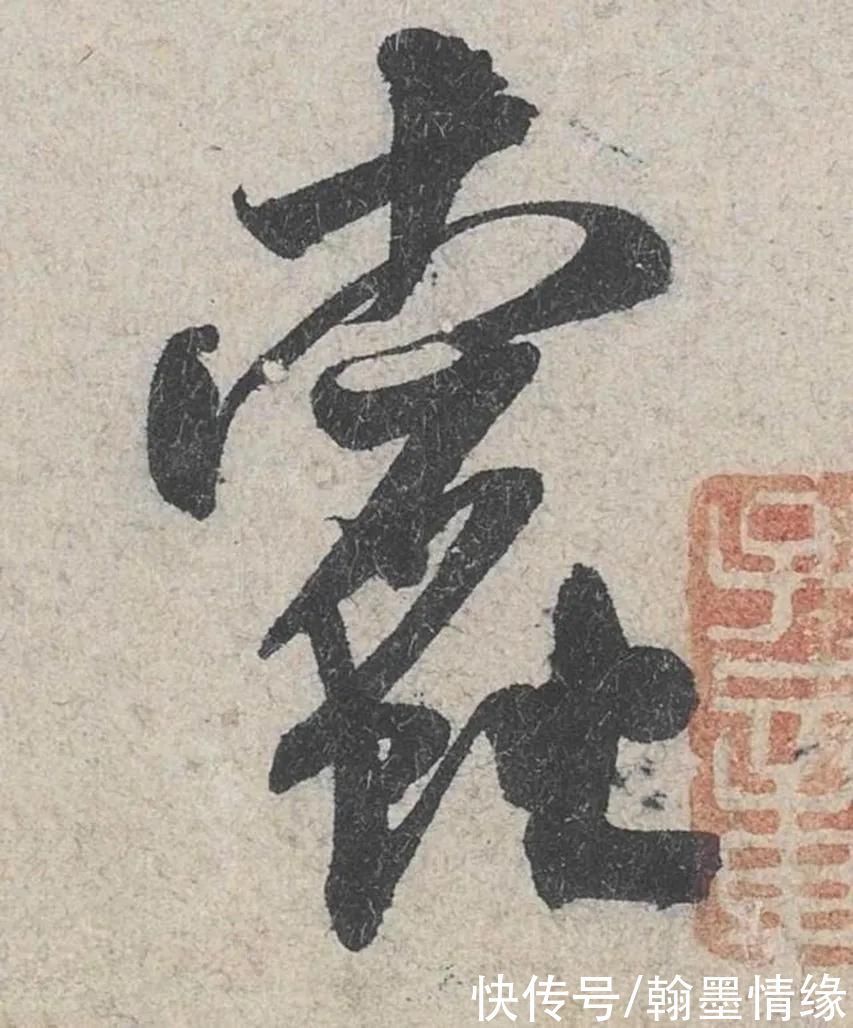 蠹
快传号/翰墨情缘